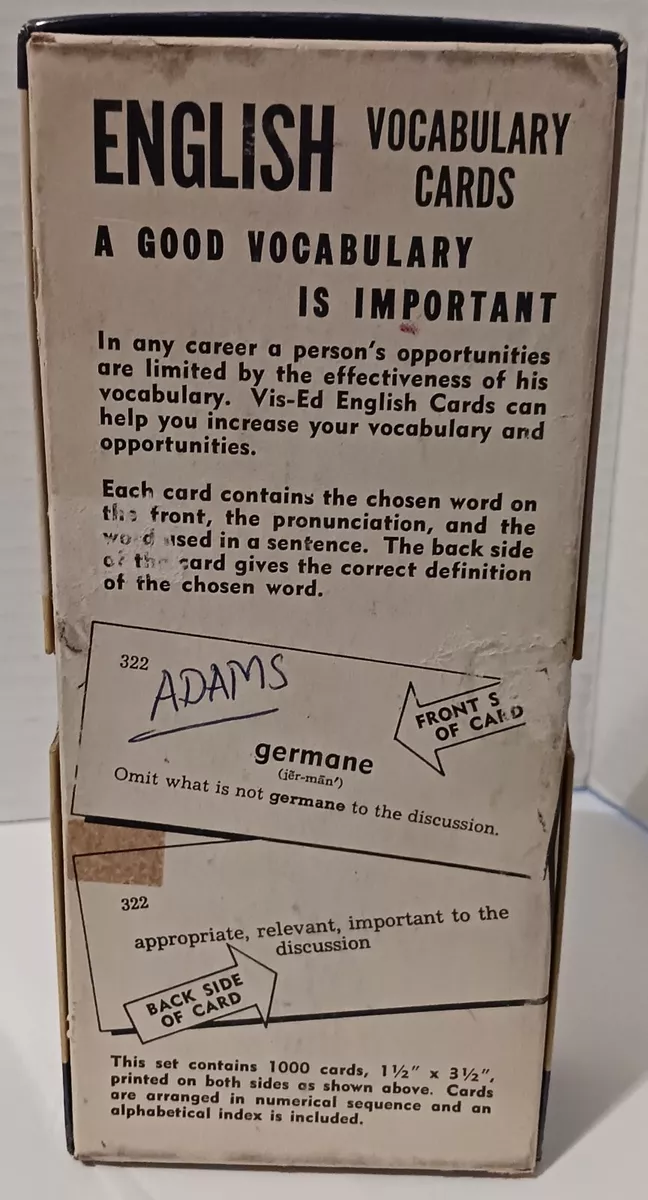 ENGLISH VOCABULARY CARDS
A GOOD VOCABULARY
IS IMPORTANT
In any career a person's opportunities
are limited by the effectiveness of his
vocabulary. Vis-Ed English Cards can
help you increase your vocabulary and
opportunities.
Each card contains the chosen word on
the front, the pronunciation, and the
word used in a sentence. The back side
of the card gives the correct definition
of the chosen word.
322
ADAMS
FRONT S
OF CARD
germane
(jẽr-mān′)
Omit what is not germane to the discussion.
322
appropriate, relevant, important to the
discussion
BACK SIDE
OF CARD
This set contains 1000 cards, 1½" x 3½",
printed on both sides as shown above. Cards
are arranged in numerical sequence and an
alphabetical index is included.